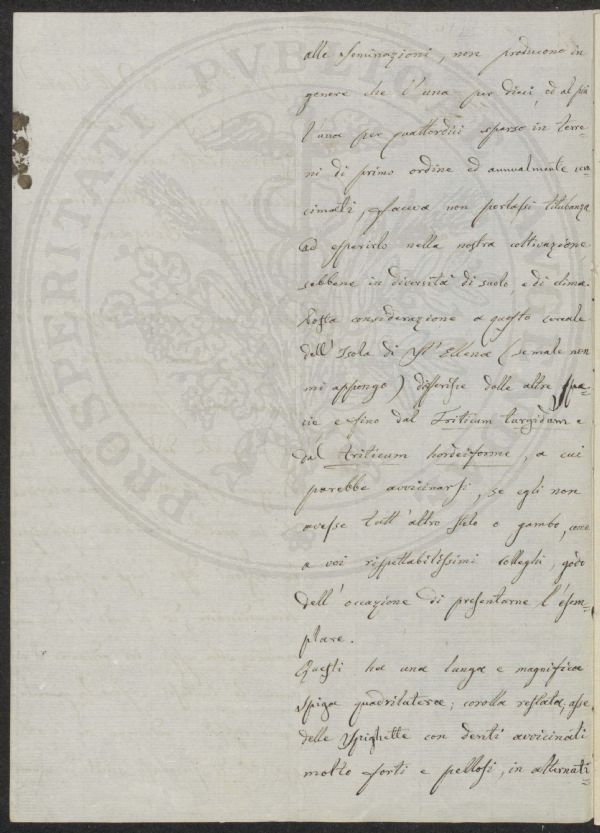 alle seminazioni, non producono in
genere che l'una per dieci, ed al più
l'una per quattordici sparso in terre=
ni di primo ordine ed annualmente con=
cimati, faceva non pertassi titubanza
ad esperirlo nella nostra coltivazione
sebbene in diversità di suolo e di clima.
Posta considerazione a questo cereale
dell'Isola di St Ellena (se male non
mi appongo) differisce dalle altre spe=
cie, e fino dal Triticum turgidum e
dal triticum hordeiforme, a cui
parebbe avvicinarsi, se egli non
avesse tutt'altro stelo o gambo, come
a voi rispettabilissimi colleghi, godo
dell'occazione di presentarne l'esem=
plare.
Questi ha una lunga e magnifica
spiga quadrilatera; corolla restata, asse
delle spighette con denti avvicinati
molto forti e pellosi, in alternati=
PROSPERITATI PVBLICAE